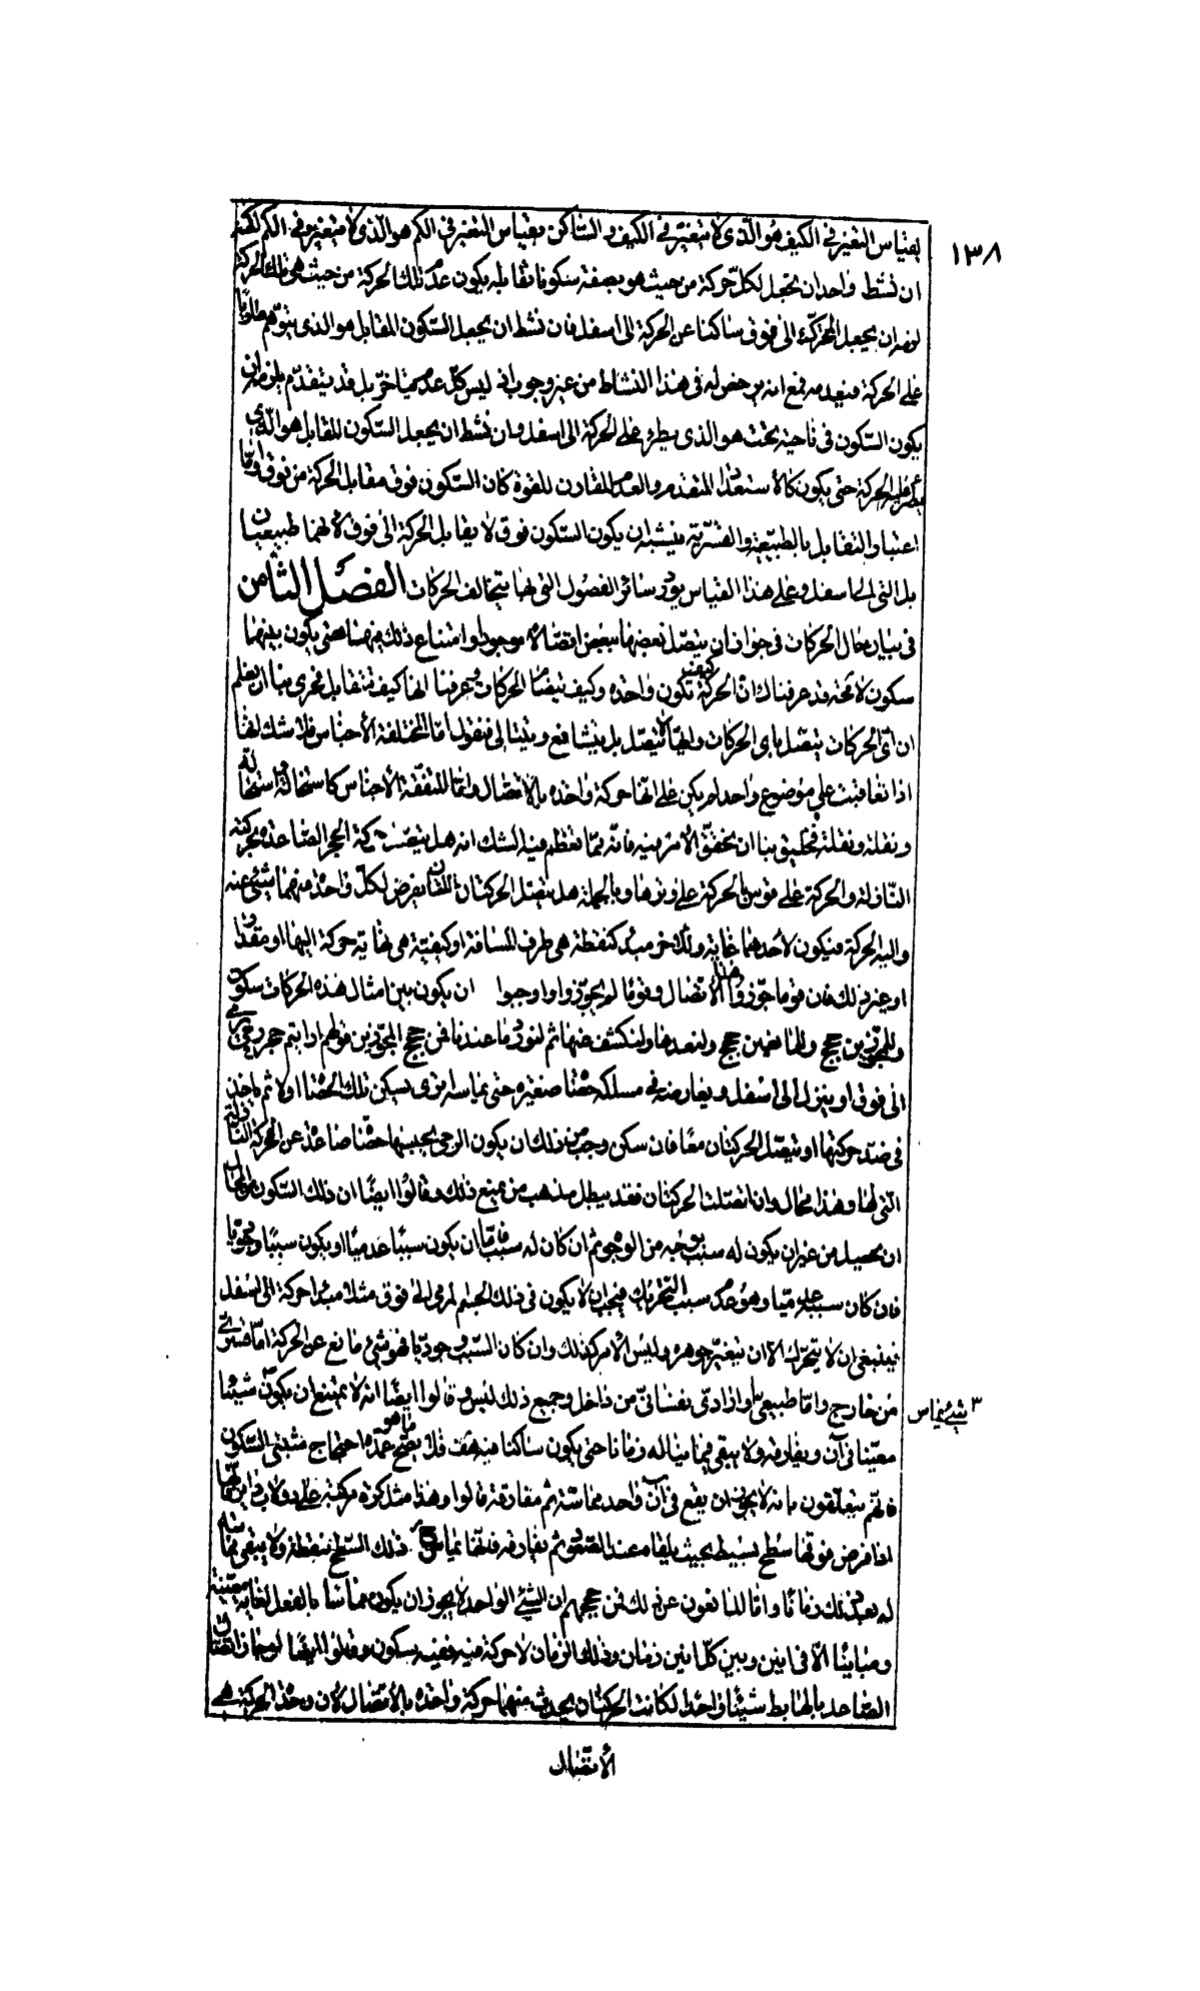 ١٣٨
بقياس التغير في الكيف هو الذي لا يتغير في الكيف والساكن بقياس التغير في الكم هو الذي لا يتغير في الكم لكنه
ان نشط واحد ان يجعل لكل حركة من حيث هو بصفة سكونا تقابله يكون عدم تلك الحركة من حيث هو تلك الحركة
لزمه ان يجعل المتحرك الى فوق ساكنا عن الحركة الى اسفل فان نشط ان يجعل السكون المقابل هو الذي يتوهم طاريا
على الحركة فيعدمه فمع انه مرخص له في هذا النشاط من غير وجوب اذ ليس كل عدم متأخر بل قد يتقدم يلزمه ان
يكون السكون في ناحية تحت هو الذي يطرء على الحركة الى اسفل وان نشط ان يجعل السكون المقابل هو الذي
يطرء عليه الحركة حتى يكون كالاستعداد المتقدم والعدم المقارن للقوة كان السكون فوق مقابل الحركة من فوق واما
اعتبار التقابل بالطبيعية والقسرية فيشبه ان يكون السكون فوق لا يقابل الحركة الى فوق لانهما طبيعيان
بل التي الى اسفل وعلى هذا القياس يورد سائر الفصول التي بها يتخالف الحركات الفصل الثامن
في بيان حال الحركات في جواز ان يتصل بعضها ببعض اتصالا موجودا او امتناع ذلك فيها حتى يكون بينهما
سكون لا محة قد عرفناك ان الحركة كيف تكون واحدة وكيف تتضاد الحركات وعرفنا انها كيف تتقابل فحري بنا ان نعلم
ان اي الحركات يتصل باي الحركات وايها لا يتصل بل يتشافع ويتتالى فنقول اما المختلفة الاجناس فلا شك انها
اذا تعاقبت على موضوع واحد لم يكن على انها حركة واحدة بالاتصال واما المتفقة الاجناس كاستحالة واستحالة
ونقلة ونقلة فخليق بنا ان نحقق الامر فيه فانه مما تعظم فيه الشك انه هل يتصل حركة الحجر الصاعدة بحركته
النازلة والحركة على قوس بالحركة على وترها وبالجملة هل يتصل الحركتان اللتان يفرض لكل واحدة منهما شيء عنه
واليه الحركة فيكون لاحدهما غاية وللاخر مبدأ كنقطة هي طرف المسافة او كيفية هي نهاية حركة اليها او مقدار
او غير ذلك فان قوما جوزوا هذا الاتصال وقوما لم يجوزوا واوجبوا ان يكون بين امثال هذه الحركات سكون
وللمجوزين حجج وللمانعين حجج ولنعدها ولنكشف عنها ثم لنورد ما عندنا فمن حجج المجوزين قولهم ارايتم حجر رحى يرمى
الى فوق او ينزل الى اسفل ويعارضه في مسلكه حصاة صغيرة حتى يماسه اترى يسكن تلك الحصاة اولا ثم ياخذ
في ضد حركتها او يتصل الحركتان معا فان سكن وجب من ذلك ان يكون الرحى يحبسها حصاة صاعدة عن الحركة النازلة
التي لها وهذا محال وان اتصلت الحركتان فقد يبطل مذهب من يمنع ذلك وقالوا ايضا ان ذلك السكون محال
ان يحصل من غير ان يكون له سبب بوجه من الوجوه ثم ان كان له سبب فاما ان يكون سببا عدميا او يكون سببا وجوديا
فان كان سببا عدميا وهو عدم سبب التحريك فيجب ان لا يكون في ذلك الجسم المرمى الى فوق مثلا مبدأ حركة الى اسفل
فينبغي ان لا يتحرك الا ان يتغير جوهره وليس الامر كذلك وان كان السبب وجوديا فهو شيء مانع عن الحركة اما قسري
من خارج واما طبيعي او ارادي نفساني من داخل وجميع ذلك ليس وقالوا ايضا انه لا يمتنع ان يكون شيئا
٣ شيء يماس
معينا في آن ويفارقه ولا يبقى مماسا له زمانا حتى يكون ساكنا فيه فقد يصح عدم ما هو احتجاج مثبتي السكون
فانهم يتعلقون بانه لا يجوز ان يقع في آن واحد مماسته ثم مفارقة قالوا وهذا مثل كرة مركبة على دولاب داير انها
اذا فرض فوقها سطح بسيط بحيث يلقاه عند الصعود ثم يفارقه فانها يماس ذلك السطح بنقطة ولا يبقى مماسته
له بعد ذلك زمانا واما المانعون عن ذلك فمن حججهم ان الشيء الواحد لا يجوز ان يكون مماسا بالفعل لغاية معينة
ومباينا الا في آنين وبين كل آنين زمان وذلك الزمان لا حركة فيه ففيه سكون وقالوا ايضا لو جاز اتصال
الصاعد بالهابط شيئا واحدا لكانت الحركتان يحدث منهما حركة واحدة بالاتصال لان وحدة الحركة هي
الاتصال